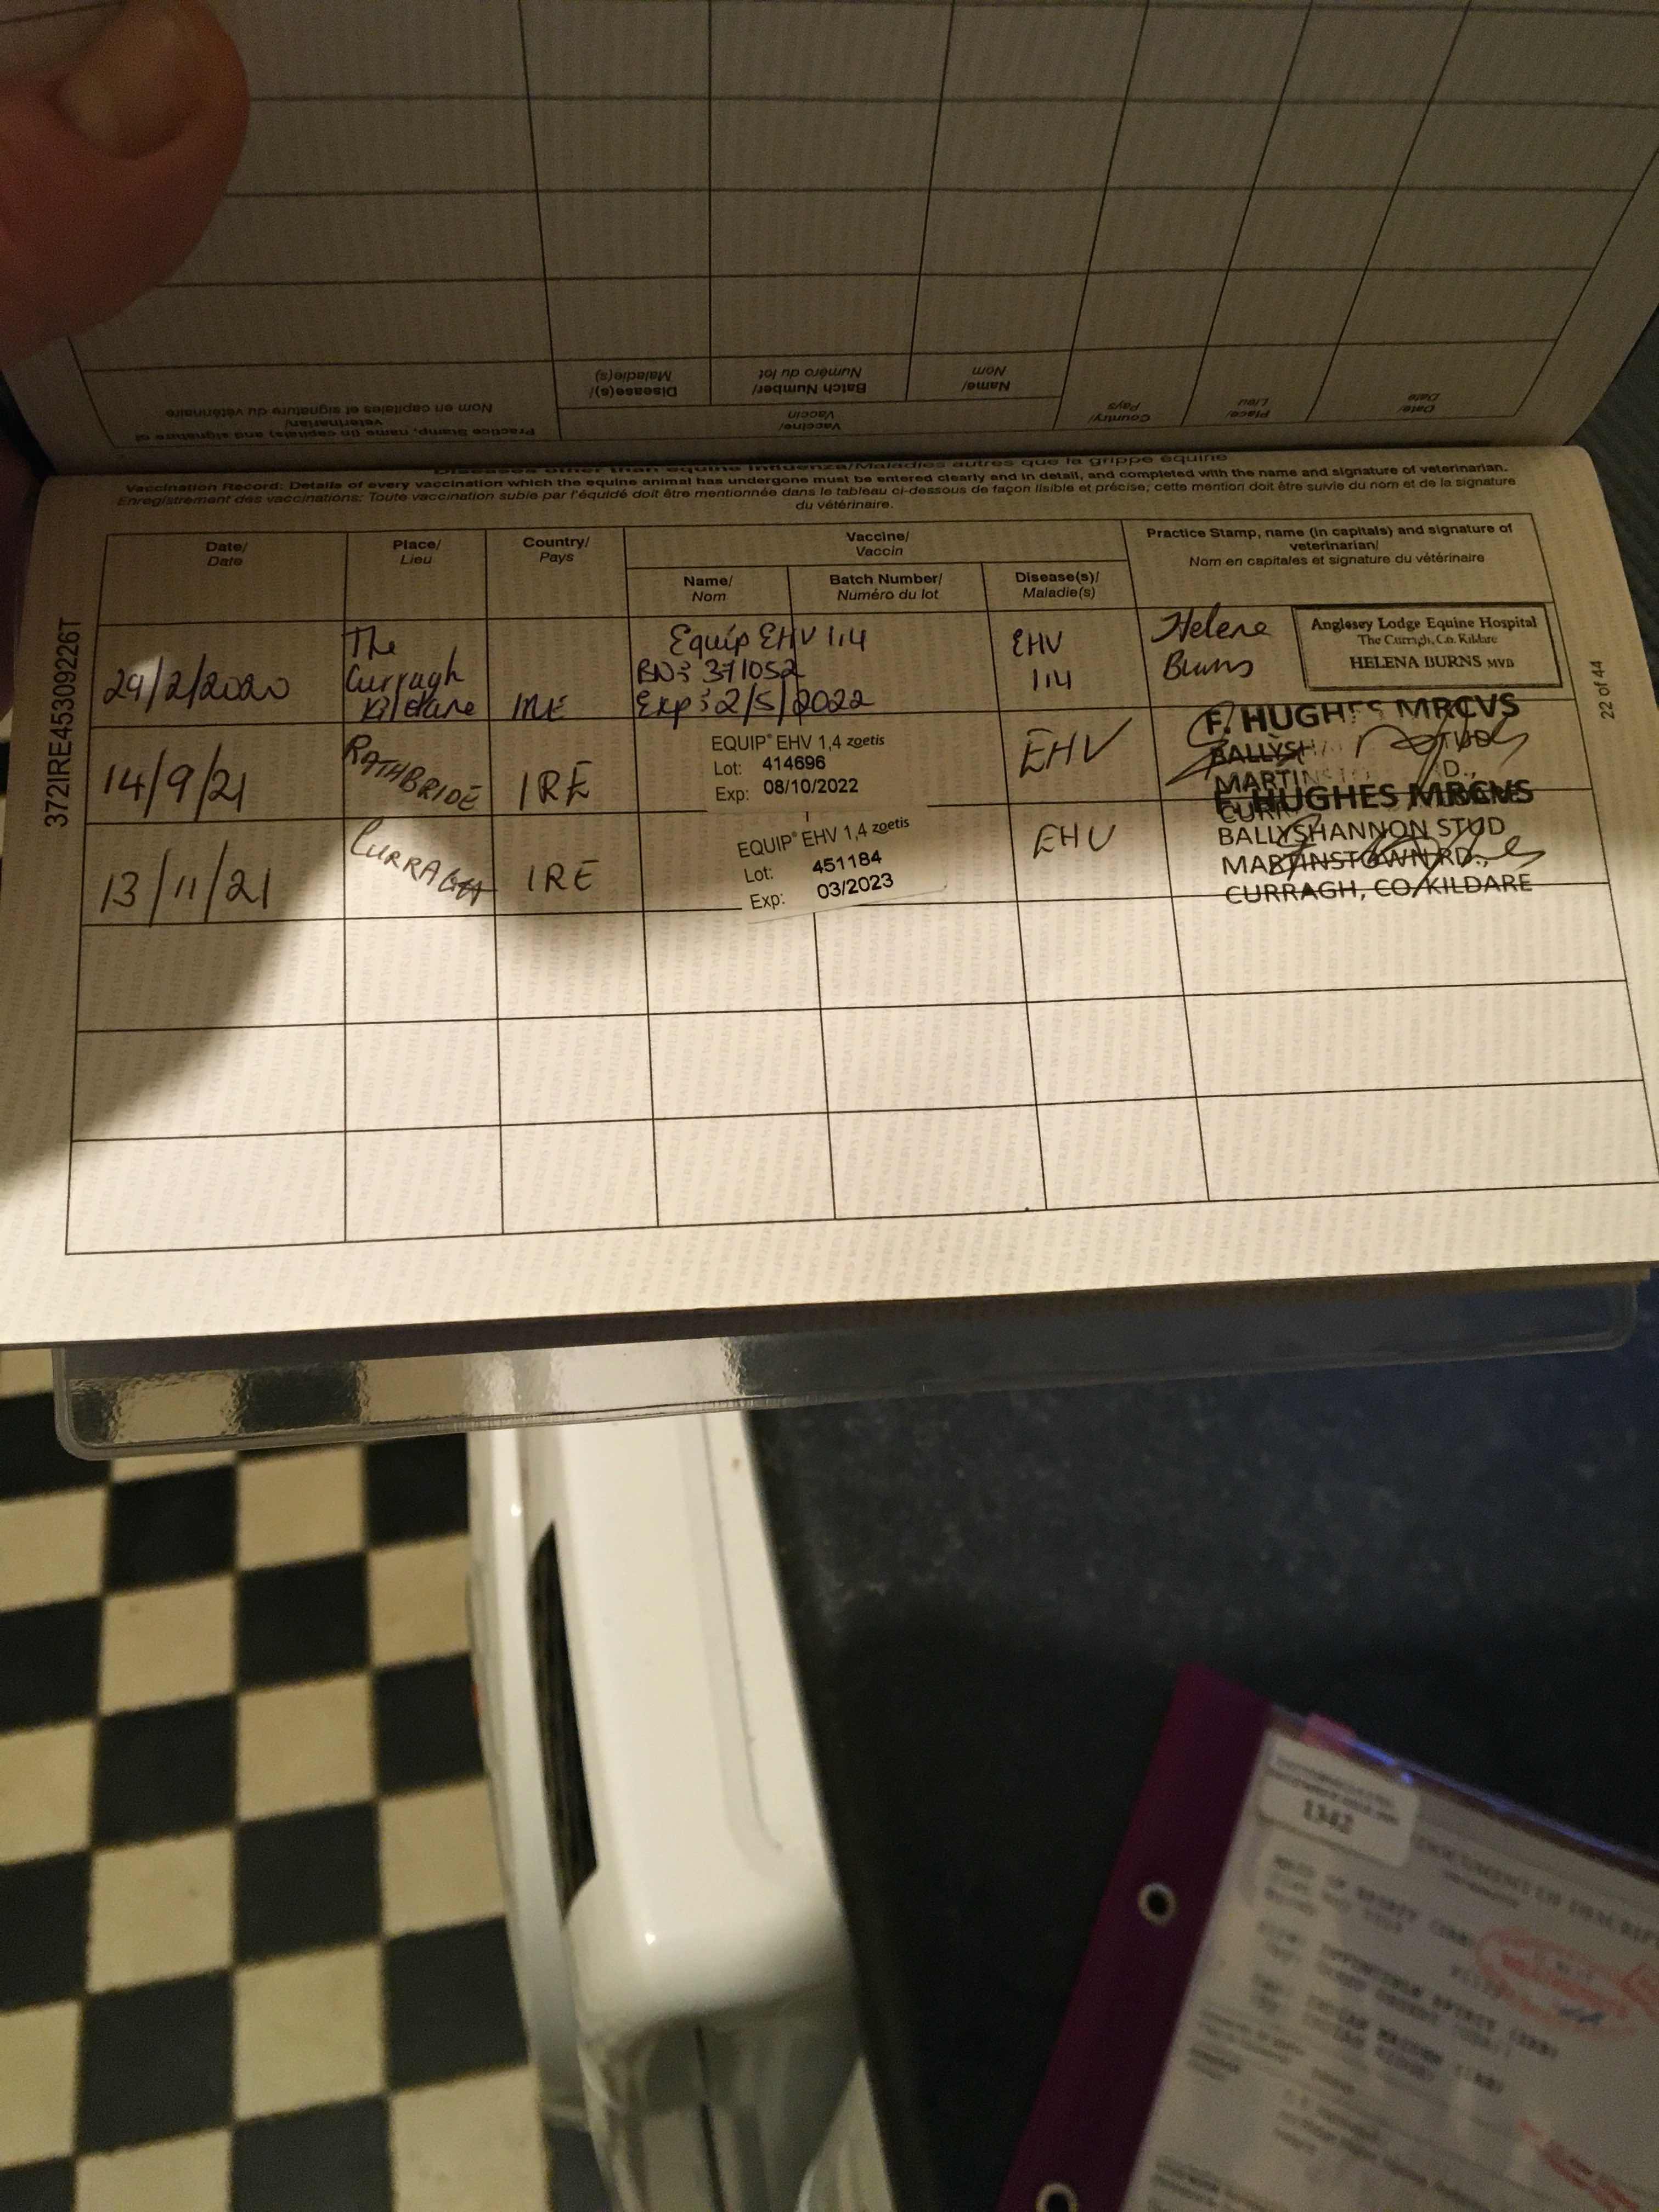 Practice Stamp, name (in capitals) and signature of
veterinarian/
Nom en capitales et signature du vétérinaire
Vaccine/
Vaccin
Disease(s)/
Maladie(s)
Batch Number/
Numéro du lot
Name/
Nom
Country/
Pays
Place/
Lieu
Date/
Date
Diseases other than equine influenza/Maladies autres que la grippe équine
Vaccination Record: Details of every vaccination which the equine animal has undergone must be entered clearly and in detail, and completed with the name and signature of veterinarian.
Enregistrement des vaccinations: Toute vaccination subie par l'équidé doit être mentionnée dans le tableau ci-dessous de façon lisible et précise; cette mention doit être suivie du nom et de la signature
du vétérinaire.
Date/
Date
Place/
Lieu
Country/
Pays
Vaccine/
Vaccin
Name/
Nom
Batch Number/
Numéro du lot
Disease(s)/
Maladie(s)
Practice Stamp, name (in capitals) and signature of
veterinarian/
Nom en capitales et signature du vétérinaire
29/2/2020
The
Curragh
Kildare
IRE
Equip EHV 1,4
BN: 371052
Exp: 2/5/2022
EHV
1,4
Helena
Burns
Anglesey Lodge Equine Hospital
The Curragh, Co. Kildare
HELENA BURNS MVB
14/9/21
RATHBRIDE
IRE
EQUIP® EHV 1,4 zoetis
Lot: 414696
Exp: 08/10/2022
EHV
F. HUGHES MRCVS
13/11/21
CURRAGH
IRE
EQUIP® EHV 1,4 zoetis
Lot: 451184
Exp: 03/2023
EHV
F. HUGHES MRCVS
BALLYSHANNON STUD
MARTINSTOWN RD.,
CURRAGH, CO. KILDARE
372IRE45309226T
22 of 44
1342